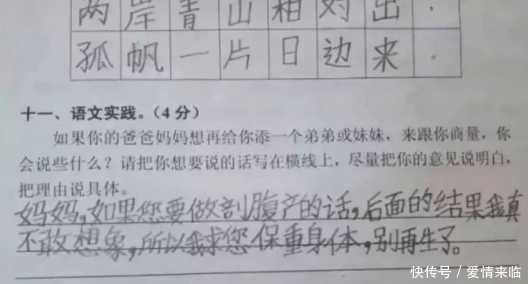 两岸青山相对出.
孤帆一片日边来.
十一、语文实践。(4分)
如果你的爸爸妈妈想再给你添一个弟弟或妹妹，来跟你商量，你
会说些什么？请把你想要说的话写在横线上，尽量把你的意见说明白，
把理由说具体。
妈妈,如果您要做剖腹产的话,后面的结果我真
不敢想象,所以我求您保重身体,别再生了。
快传号/爱情来临